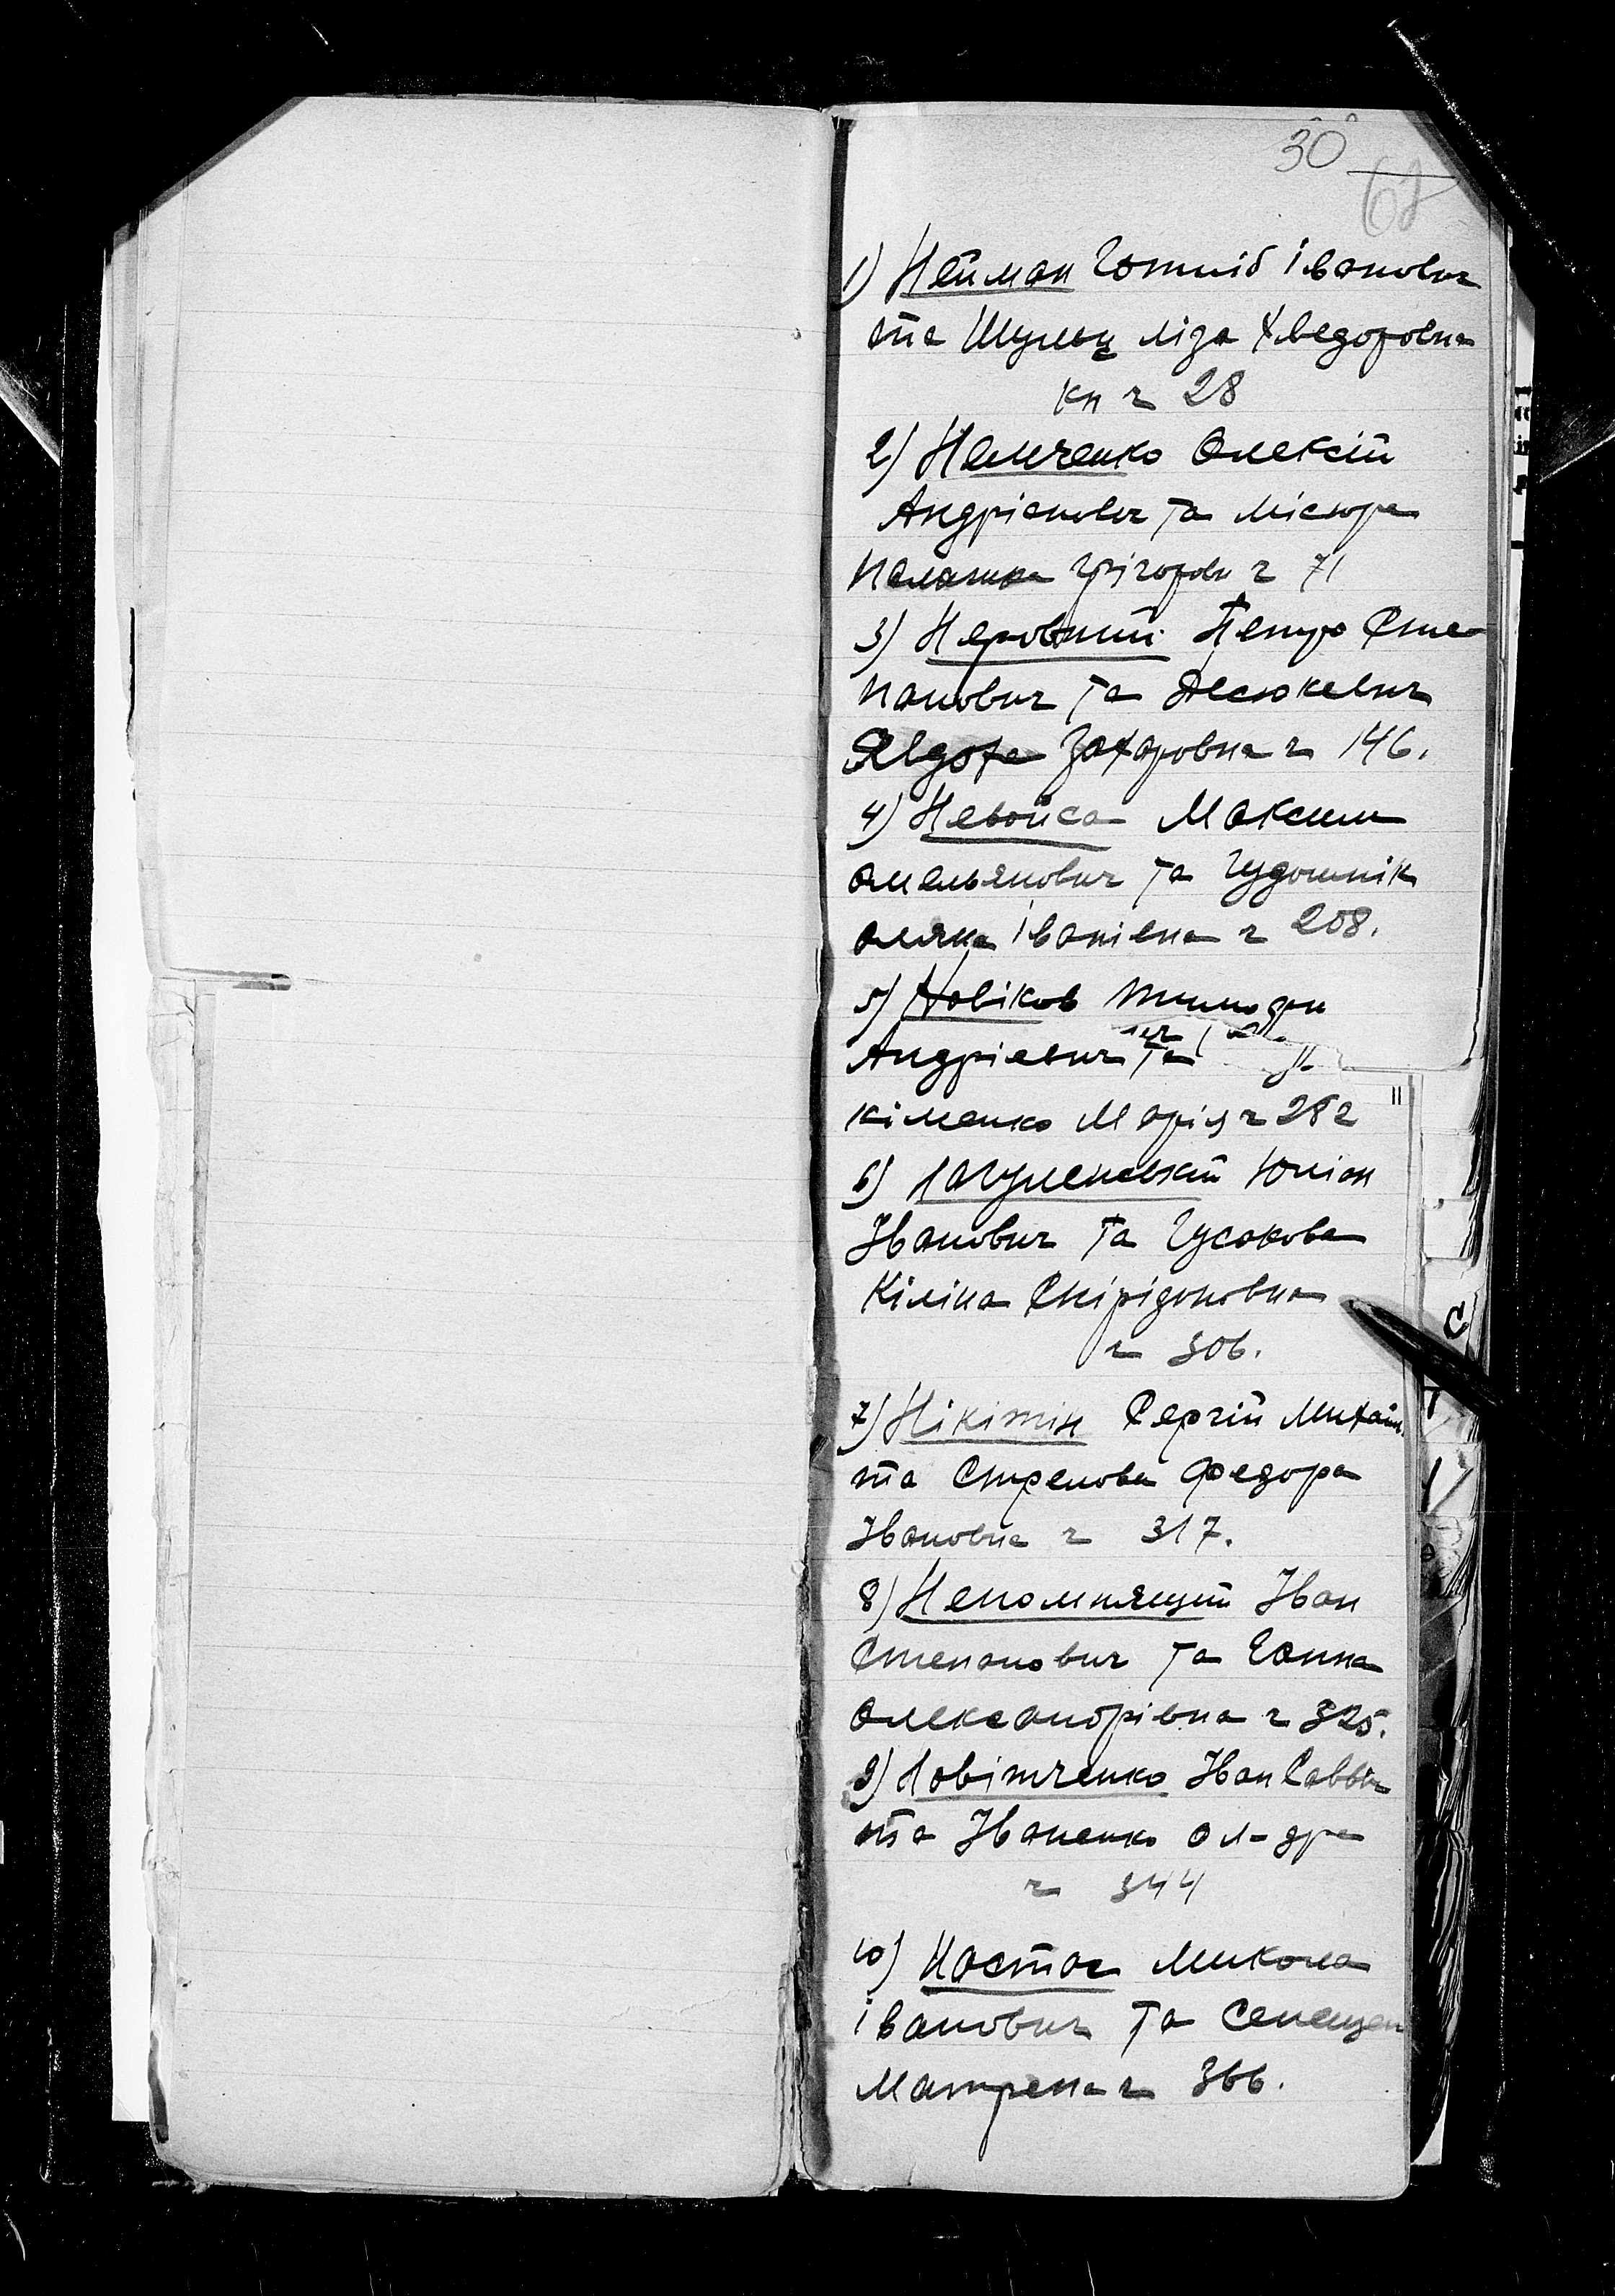 30
62
1) Нейман Готліб Іванович
та Шульц Ліза Хведоровна
кн ч 28
2) Немченко Олексій
Андріянович та Місюра
Палашка Грігоров ч 71
3) Неровний Петро Сте-
панович та
Явдоха Захаровна ч 146.
4) Невойса Максим
Омельянович та Гудошнік
Оляна Іванівна ч 208.
5) Новіков Тимофи
Андрієвич та
кіменко Марія ч 282
6) Юліан
Іванович та Гусакова
Киліна Спірідоновна
ч 306.
7) Нікітін Сергій Михайл.
та Стрелова Федора
Івановна ч 317.
8) Непомнящий Іван
Степанович та Ганна
Олександрівна ч 325.
9) Іван Саввич
та Іваненко Ол-дра
ч 344
10) Настас Микола
Іванович та
Матрена ч 366.